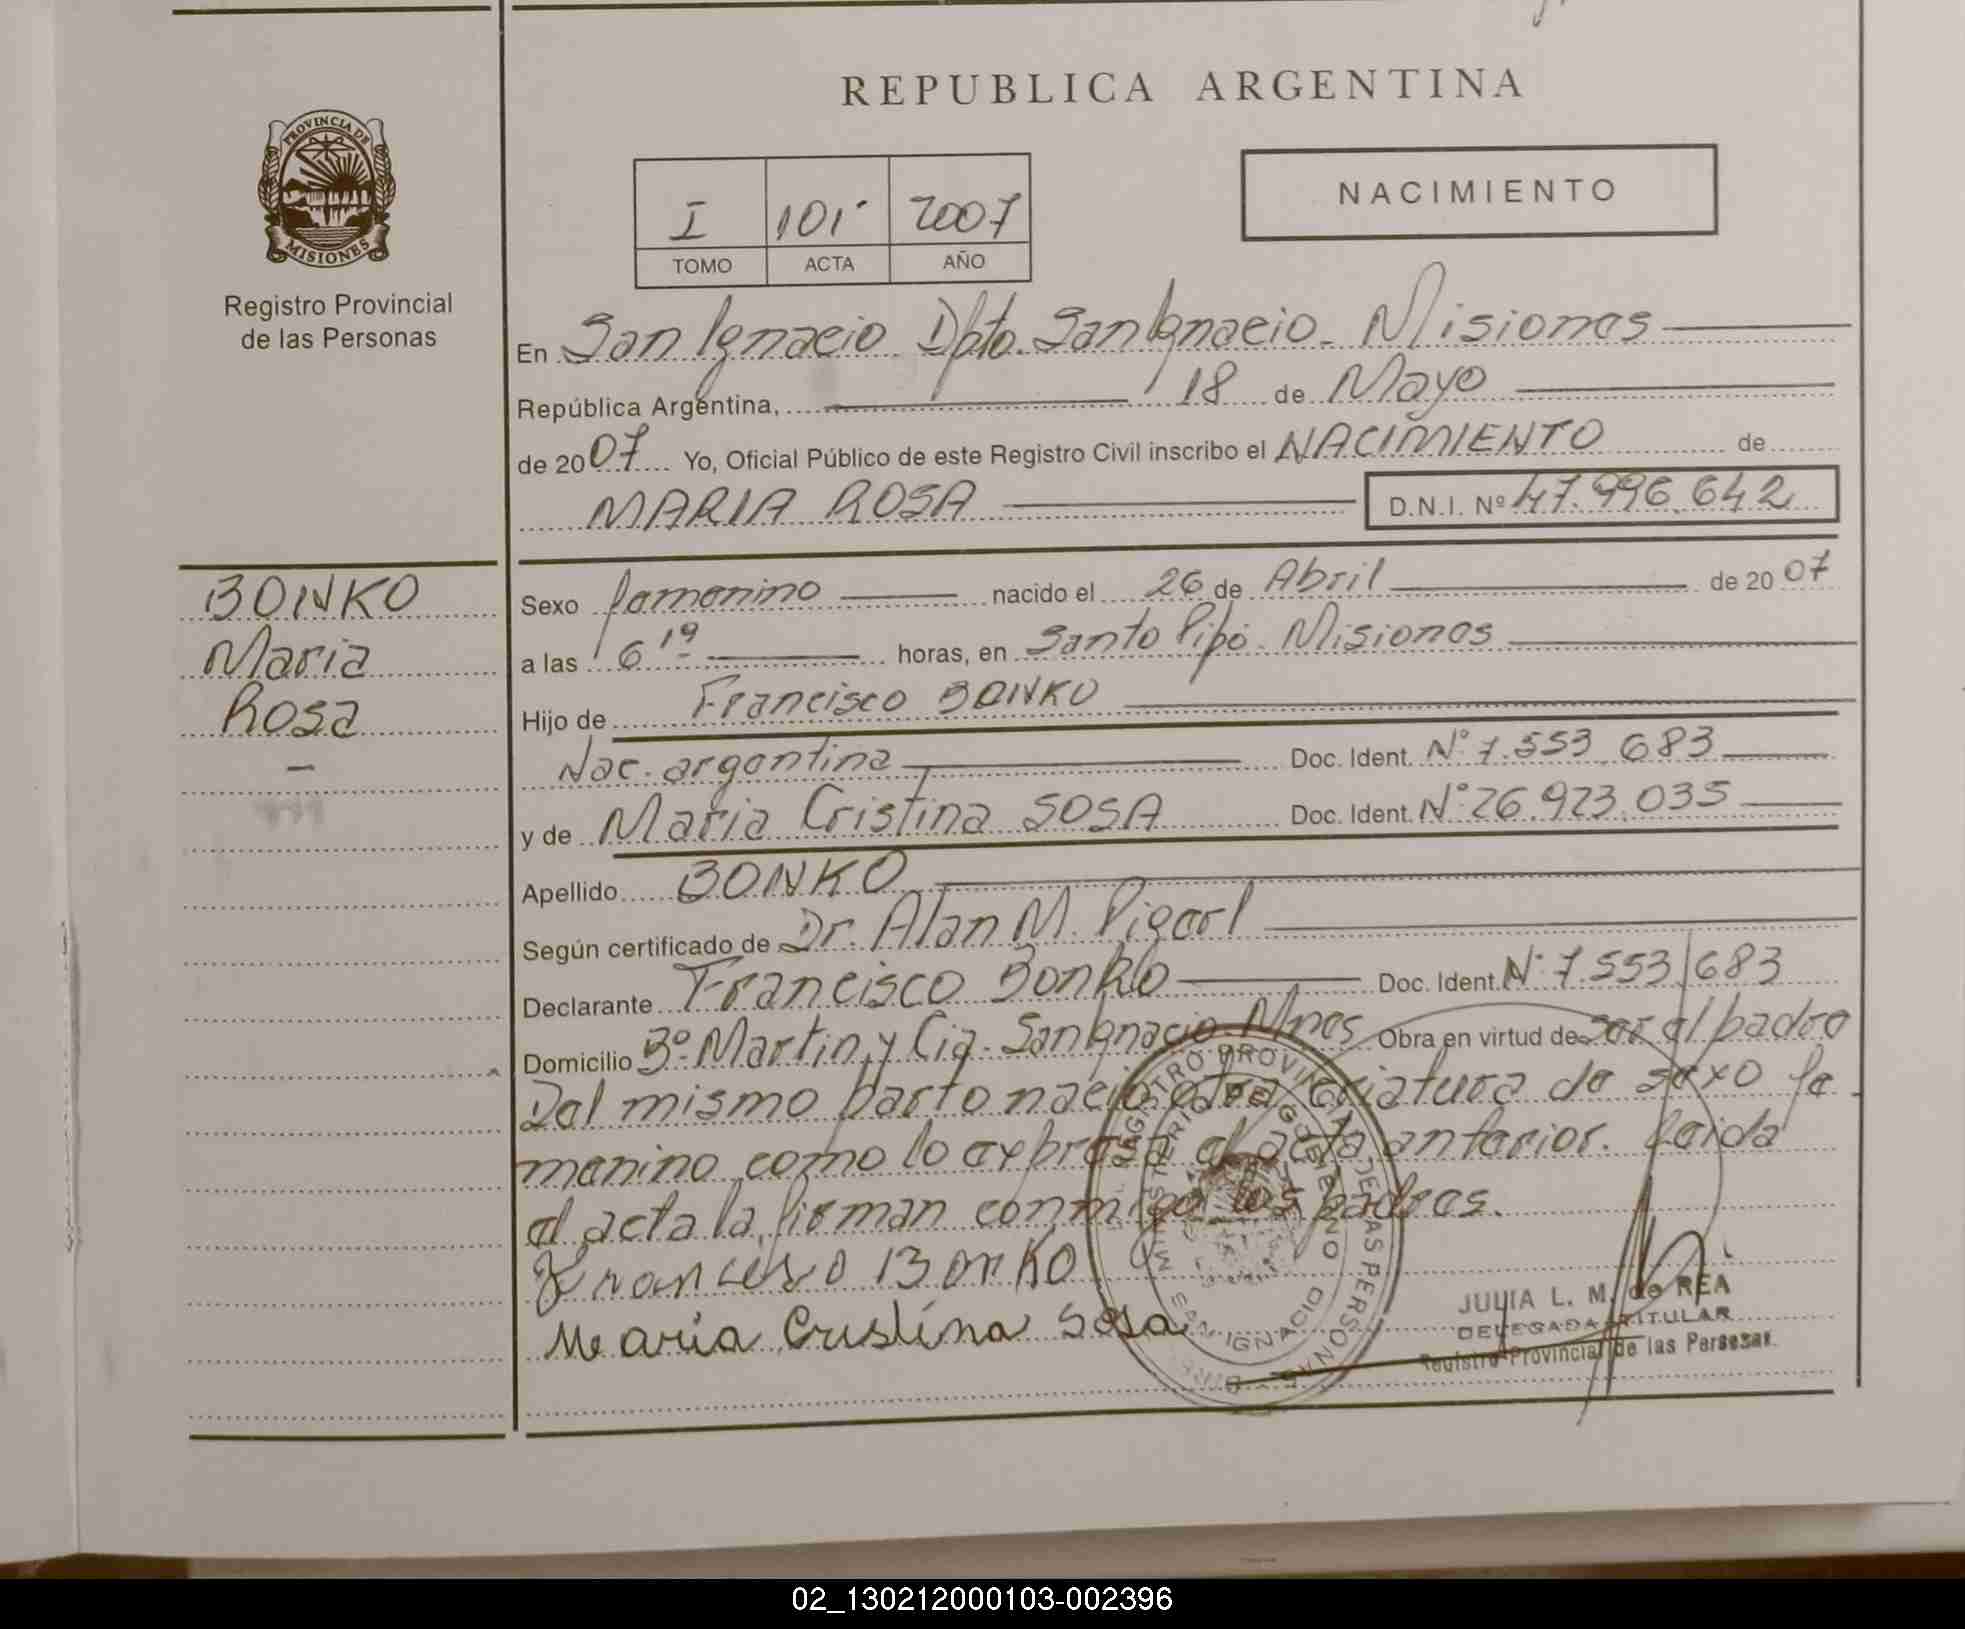 REPUBLICA ARGENTINA
PROVINCIA DE
MISIONES
Registro Provincial
de las Personas
NACIMIENTO
I 101 2007
TOMO ACTA AÑO
En San Ignacio Dpto. San Ignacio. Misiones
República Argentina, 18 de Mayo
de 2007 Yo, Oficial Público de este Registro Civil inscribo el NACIMIENTO de
MARIA ROSA D.N.I. Nº 47.996.642
BONKO
Maria
Rosa
Sexo femenino nacido el 26 de Abril de 2007
a las 6 19 horas, en Santo Pipó. Misiones
Hijo de Francisco BONKO
Nac. argentina Doc. Ident. Nº 7.553.683
y de Maria Cristina SOSA Doc. Ident. Nº 26.923.035
Apellido BONKO
Según certificado de Dr. Alan M.
Declarante Francisco Bonko Doc. Ident. Nº 7.553.683
Domicilio Bº Martin y Cia. San Ignacio. Mnes Obra en virtud de ser el padre
Del mismo parto nació otra criatura de sexo fe
menino como lo expresa el acta anterior. Leida
el acta la firman conmigo los padres.
Francisco Bonko
Maria Cristina Sosa
REGISTRO PROVINCIAL DE LAS PERSONAS
MINISTERIO DE GOBIERNO
SAN IGNACIO
JULIA L. M. de REA
DELEGADA TITULAR
Registro Provincial de las Personas
02_130212000103-002396